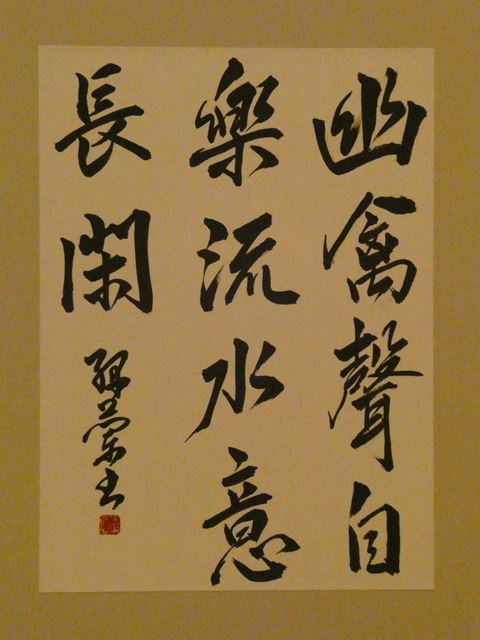 幽禽聲自
樂流水意
長閑